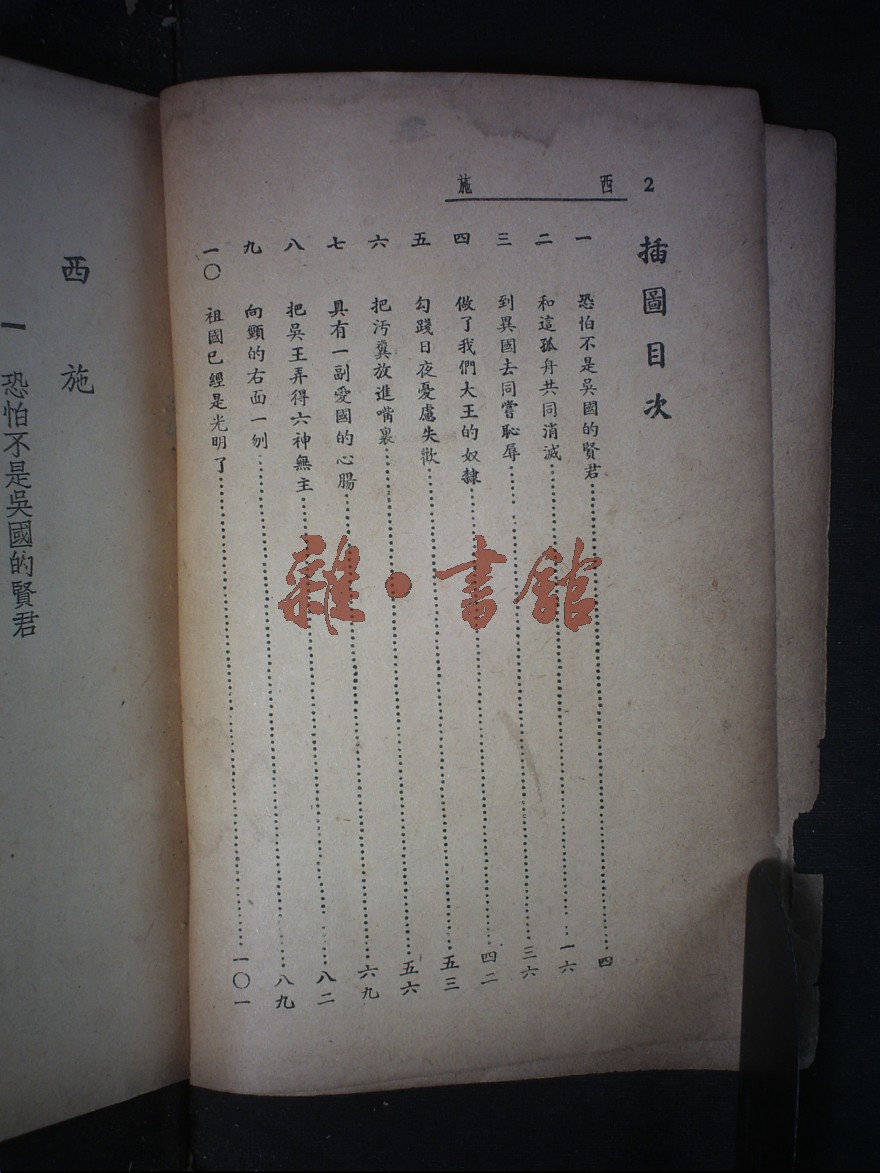 西施 2
插圖目次
一 恐怕不是吳國的賢君 四
二 和這孤舟共同消滅 一六
三 到異國去同嘗恥辱 三六
四 做了我們大王的奴隸 四二
五 勾踐日夜憂慮失歡 五三
六 把汚糞放進嘴裏 五六
七 具有一副愛國的心腸 六九
八 把吳王弄得六神無主 八二
九 向頸的右面一刎 八九
一〇 祖國已經是光明了 一〇一
雜·書館
西施
一 恐怕不是吳國的賢君